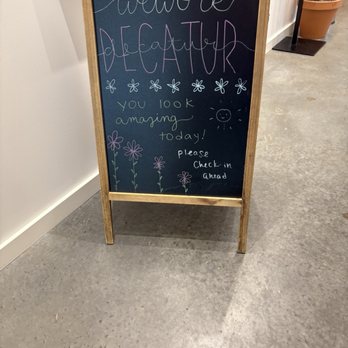 DECATUR
decatur
you look
amazing
today!
please
check in
ahead